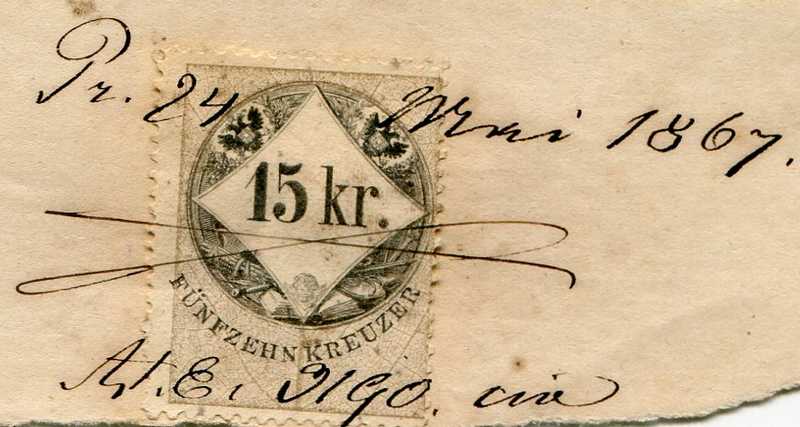 Pr. 24 Mai 1867.
15 kr.
FÜNFZEHN KREUZER
3190.